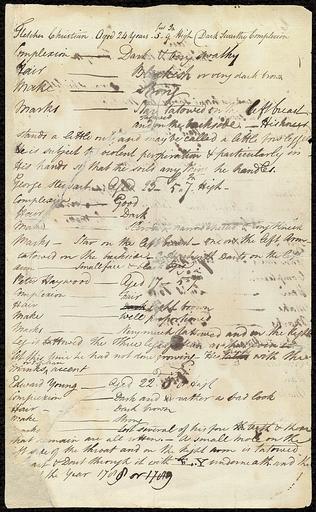 Fletcher Christian. Aged 24 years 5.9 High Dark Swarthy Complexion
Complexion — Dark & very swarthy
Hair — Blackish or very dark brown
Make — Strong
Marks — Star tatowed on the left breast
and on the backside —
stands a little out and may be called a little bow legged
He is subject to violent perspiration & particularly in
His hands so that he soils any thing he handles.
George Stewart — Aged 23 5.7 High —
Complexion — Good
Hair — Dark
Make — Slender narrow chested
Marks — Star on the left breast — one on the left Arm
tatowed on the backside — on the left
arm — Small face &
Peter Haywood — Aged 17 5.7
Complexion — Fair
Hair — light brown
Make — Well proportioned
Marks — Very much tatowed and on the right
Leg is tatowed the Three legs of Man
At this time he had not done growing — He with the
Edward Young — Aged 22 5
Complexion — Dark and rather a bad look
Hair — Dark brown
Make — Strong
Marks — Lost several of his fore teeth & those
that remain are all rotten — A small mole on the
left side of the throat and on the right arm is tatowed
Heart & Dart through it with underneath and the
the year 1788 or 1789